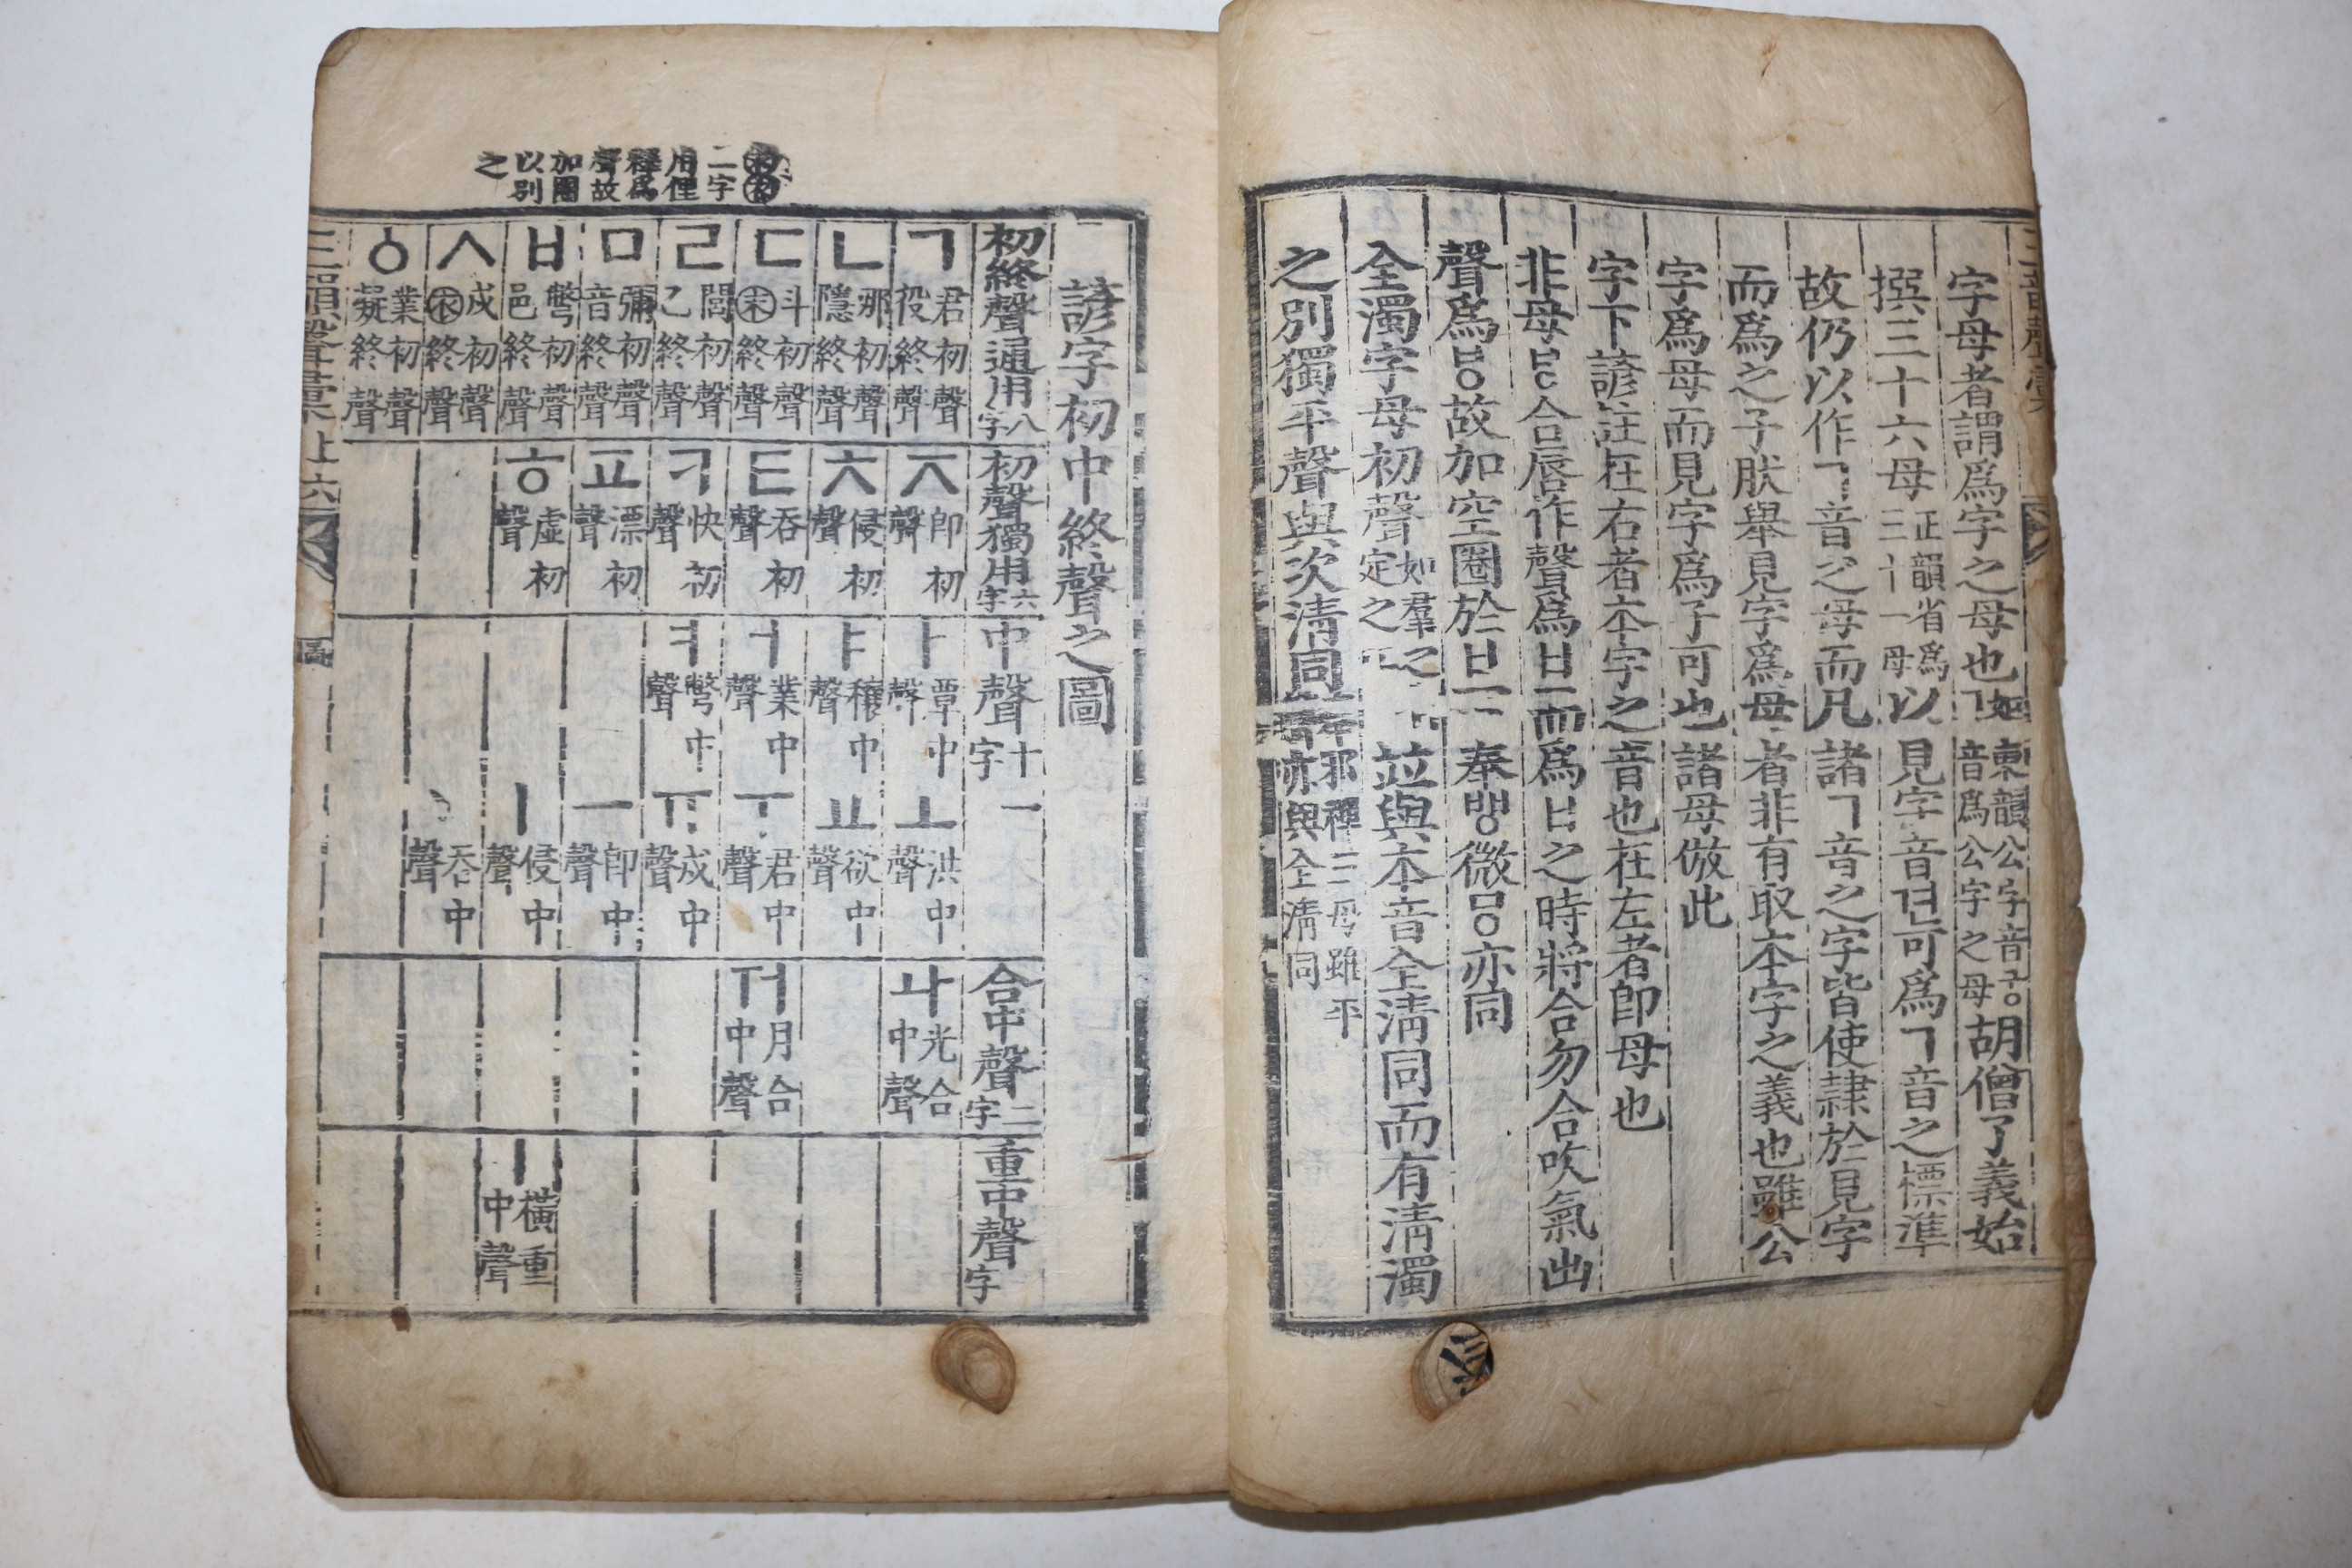 字母者謂爲字之母也如東韻公字音궁ㄱ音爲公字之母胡僧了義始
撰三十六母正韻省爲三十一母以見字音견可爲ㄱ音之標準
故仍以作ㄱ音之母而凡諸ㄱ音之字皆使隷於見字
而爲之子朕舉見字爲母者非有取本字之義也雖公
字爲母而見字爲子可也諸母倣此
字下諺註在右者本字之音也在左者卽母也
非母ㅸ合唇作聲爲ㅂ而爲ㅸ之時將合勿合吹氣出
聲爲ㅸ故加空圈於ㅂ下奉ㅹ微ㅱ亦同
全濁字母初聲如羣之ㄲ定之ㄸ並與本音全淸同而有淸濁
之別獨平聲與次淸同邪禪二母雖平聲亦與全淸同
二字用俚釋爲聲故加圈以別之
諺字初中終聲之圖
初終聲通用八字 初聲獨用六字 中聲十一字 合中聲二字 重中聲一字
ㄱ君初聲役終聲 ㅈ卽初聲 ㅏ覃中聲 ㅗ洪中聲 ㅘ光合中聲
ㄴ那初聲隱終聲 ㅊ侵初聲 ㅑ穰中聲 ㅛ欲中聲
ㄷ斗初聲末終聲 ㅌ呑初聲 ㅓ業中聲 ㅜ君中聲 ㅝ月合中聲
ㄹ閭初聲乙終聲 ㅋ快初聲 ㅕ彆中聲 ㅠ戌中聲
ㅁ彌初聲音終聲 ㅍ漂初聲 ㅡ卽中聲
ㅂ彆初聲邑終聲 ㅎ虛初聲 ㅣ侵中聲 ㅣ橫重中聲
ㅅ戌初聲衣終聲 ㆍ呑中聲
ㆁ業初聲凝終聲
三韻聲彙上 六